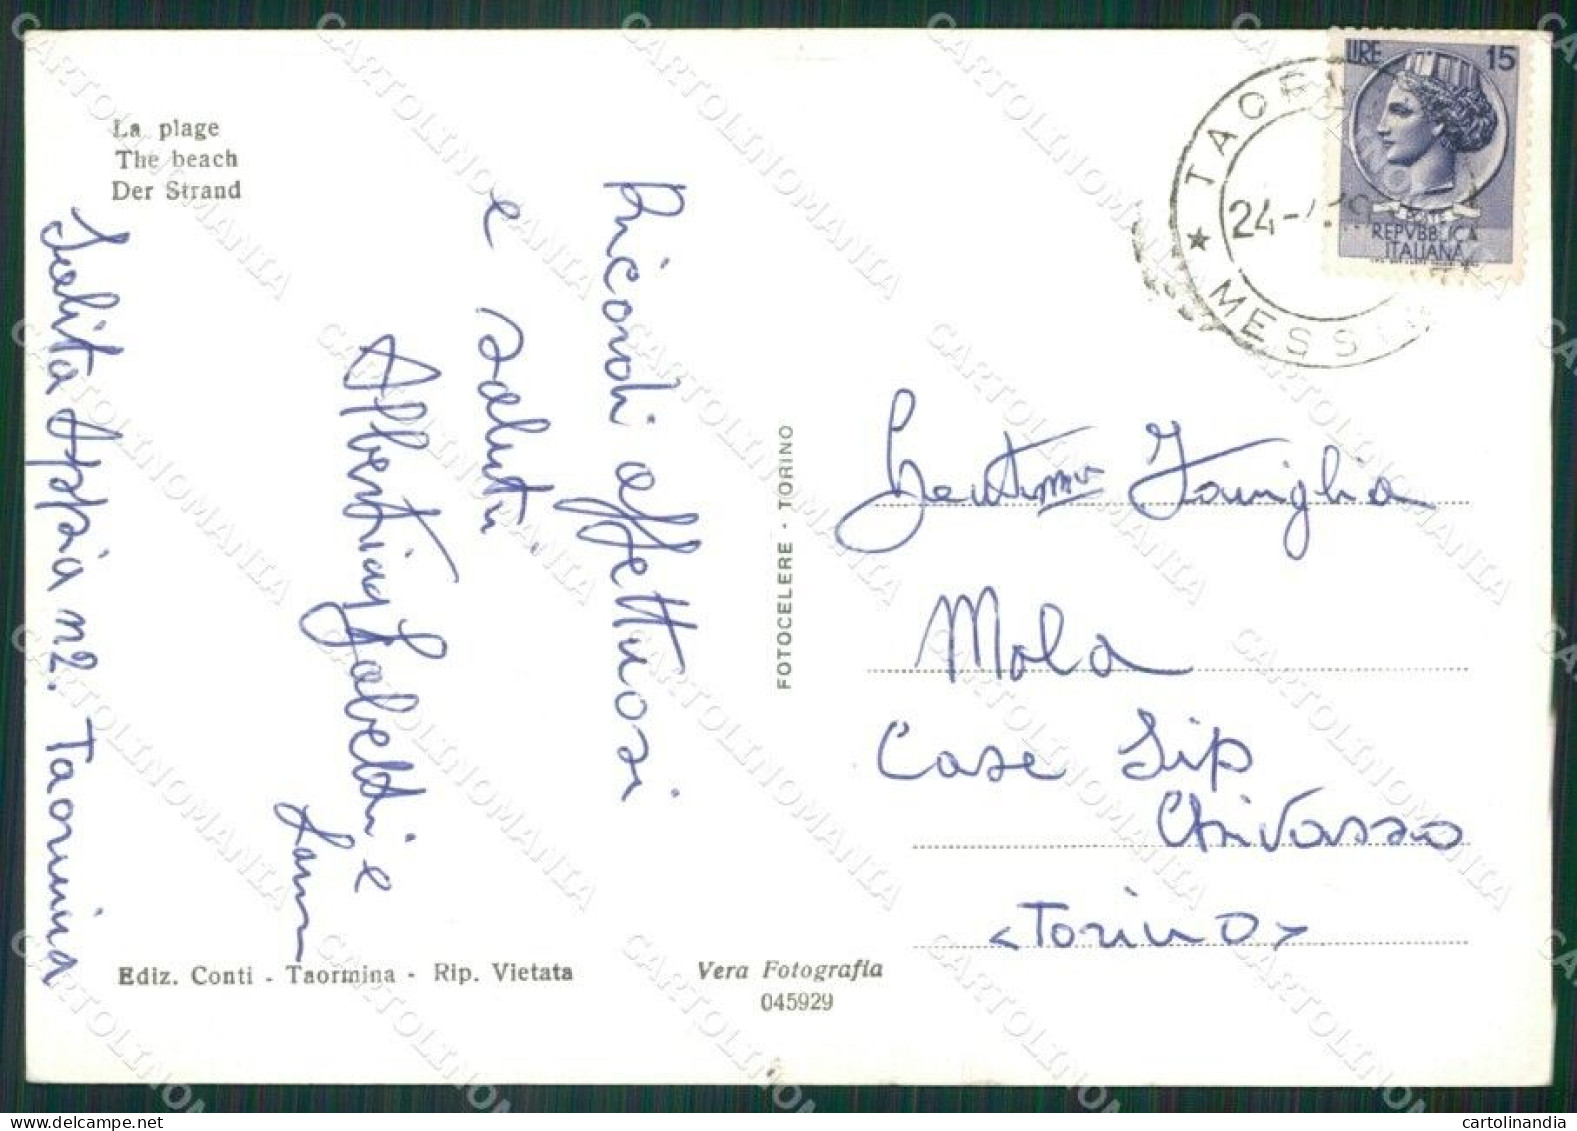 La plage
The beach
Der Strand
Ricordi affettuosi
e saluti
Salita Appia n2. Taormina
FOTOCELERE - TORINO
LIRE 15
POSTE
REPVBBLICA
ITALIANA
★ TAORM
24-
MESS
Gentma Famiglia
Mola
Case Sip
Chivasso
<Torino>
Ediz. Conti - Taormina - Rip. Vietata
Vera Fotografia
045929
CARTOLINOMANIA
cartolinandia